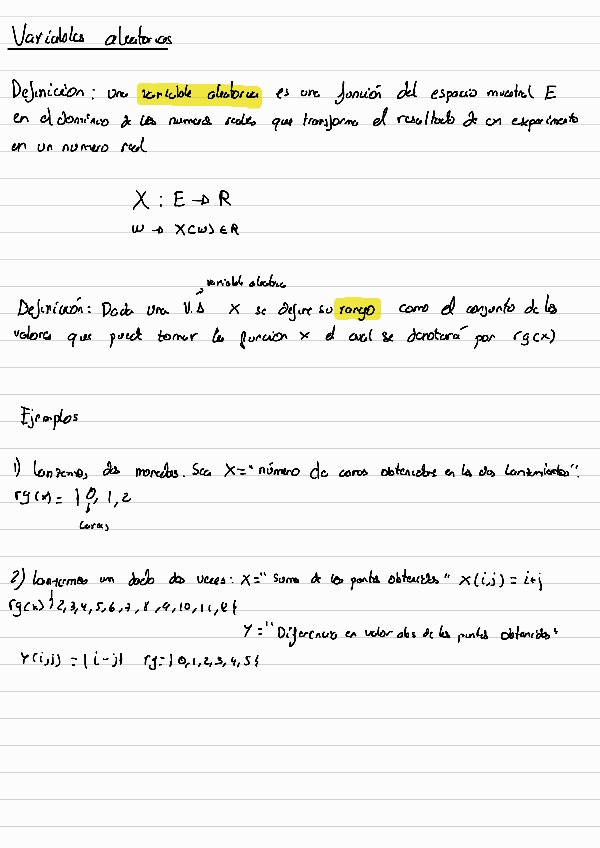 Variables aleatorias
Definicion: una variable aleatoria es una función del espacio muestral E
en el dominio de los numeros reales que transforma el resultado de un experimento
en un numero real
X : E → R
w → X(w) ∈ R
variable aleatoria
Definición: Dada una V.A X se define su rango como el conjunto de los
valores que puede tomar la funcion x el cual se denotará por rg(x)
Ejemplos
1) Lanzamos dos monedas. Sea X="número de caras obtenidas en los dos lanzamientos".
rg(x) = {0, 1, 2
caras
2) Lanzamos un dado dos veces: X="Suma de los puntos obtenidos" X(i,j) = i+j
rg(x) {2,3,4,5,6,7,8,9,10,11,12}
Y="Diferencia en valor abs de los puntos obtenidos"
Y(i,j) = |i-j| rg={0,1,2,3,4,5}